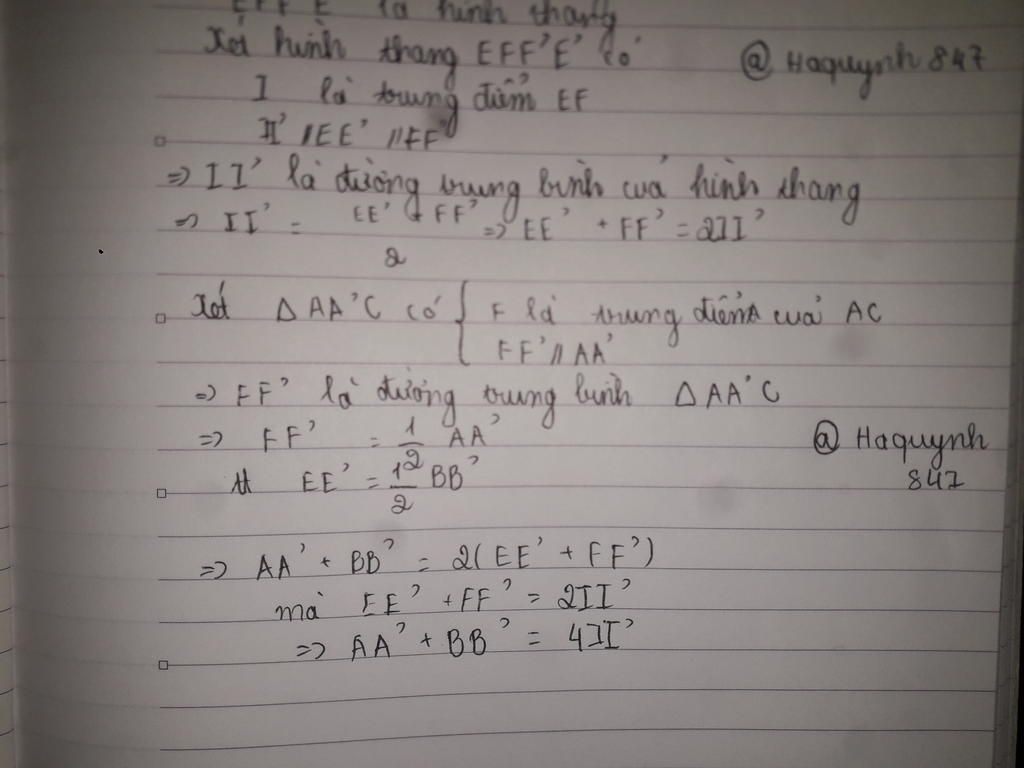 EFF'E' là hình thang
Xét hình thang EFF'E' có
@ Haquynh 847
I là trung điểm EF
II' // EE' // FF'
=> II' là đường trung bình cuả hình thang
=> II' = EE' + FF' / 2 => EE' + FF' = 2II'
Xét Δ AA'C có { F là trung điểm cuả AC
FF' // AA'
=> FF' là đường trung bình Δ AA'C
=> FF' = 1/2 AA'
@ Haquynh
847
tt EE' = 1/2 BB'
=> AA' + BB' = 2(EE' + FF')
mà EE' + FF' = 2II'
=> AA' + BB' = 4II'